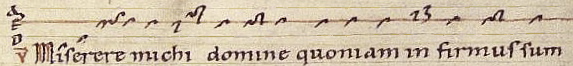 v Miserere michi domine quoniam in firmus sum